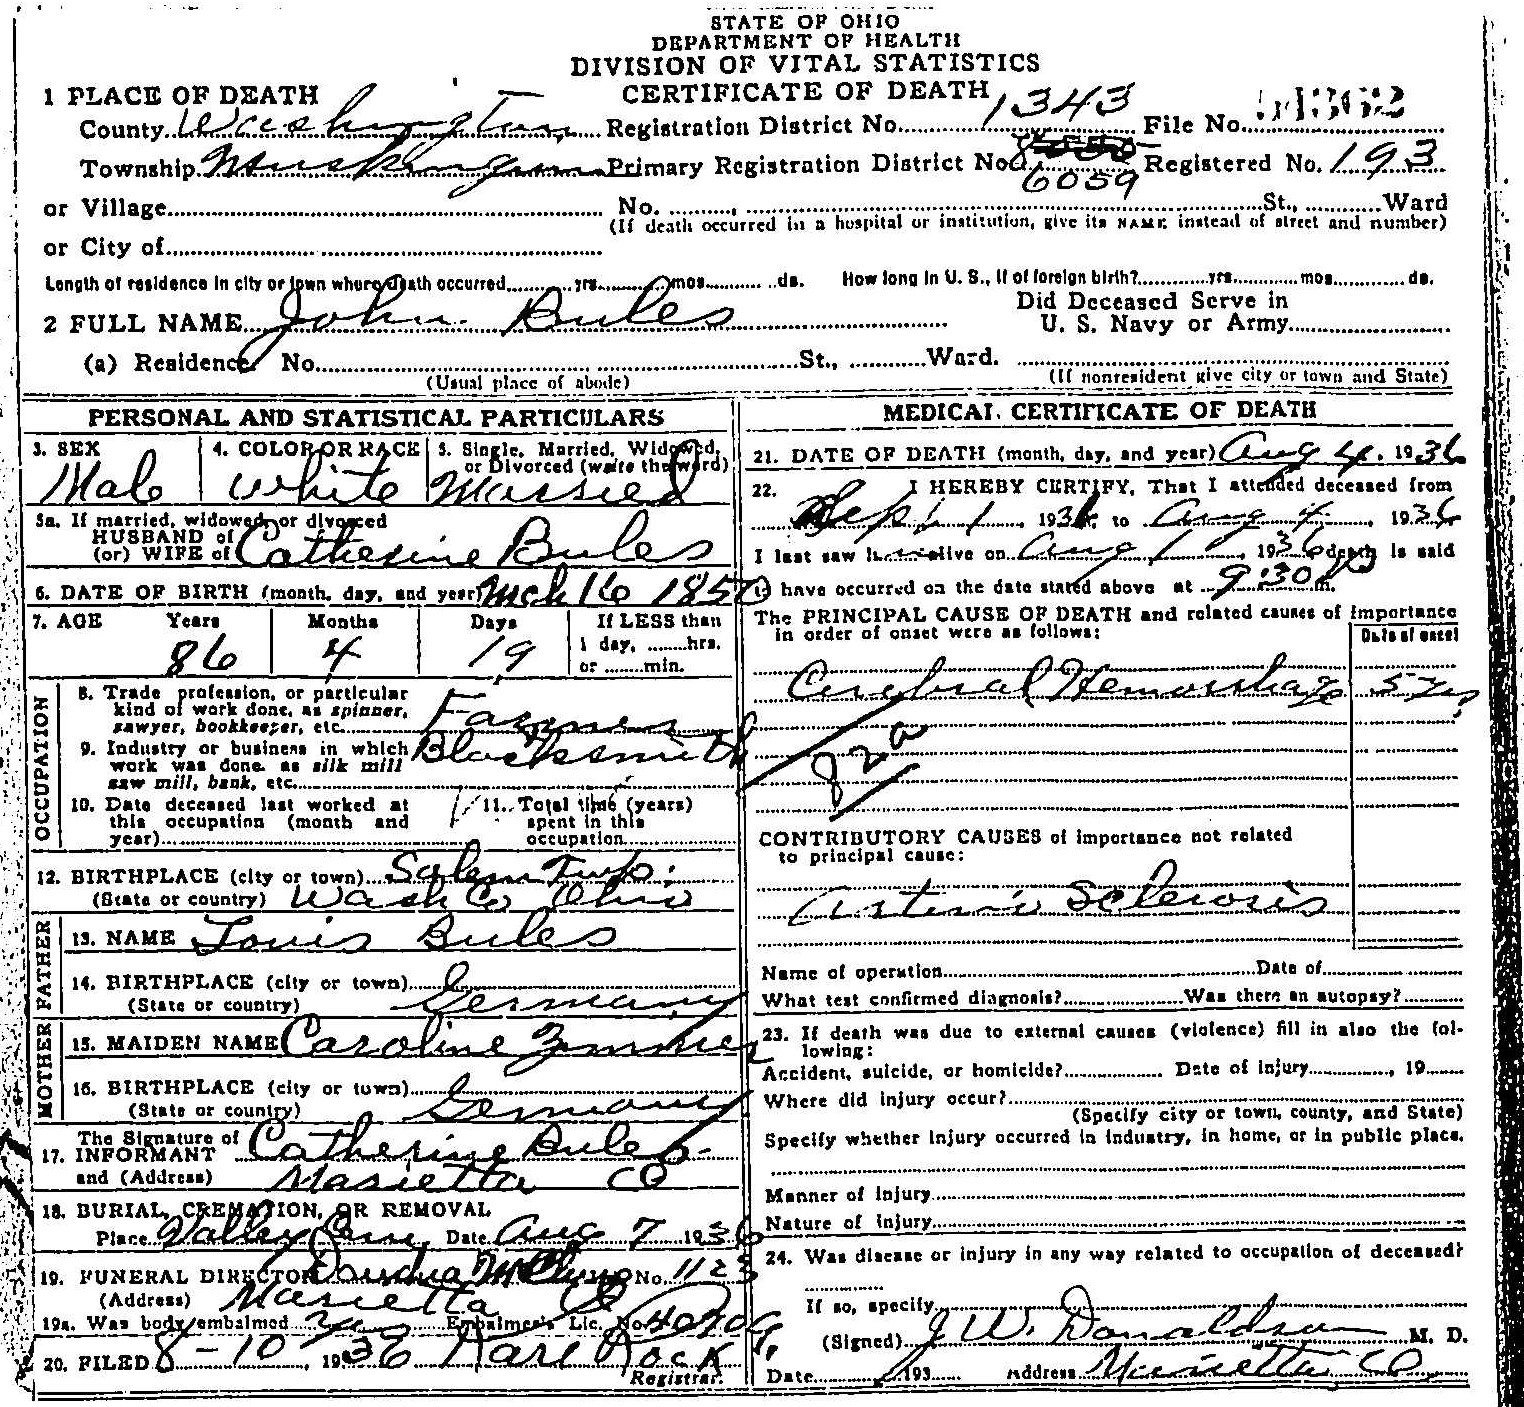 STATE OF OHIO
DEPARTMENT OF HEALTH
DIVISION OF VITAL STATISTICS
CERTIFICATE OF DEATH
1 PLACE OF DEATH
County Washington Registration District No. 1343 File No. 51362
Township Muskingum Primary Registration District No. 6059 Registered No. 193
or Village No. , St., Ward
(If death occurred in a hospital or institution, give its NAME instead of street and number)
or City of
Length of residence in city or town where death occurred yrs. mos. ds. How long in U. S., if of foreign birth? yrs. mos. ds.
2 FULL NAME John Bules
Did Deceased Serve in
U. S. Navy or Army
(a) Residence No. St., Ward.
(Usual place of abode) (If nonresident give city or town and State)
PERSONAL AND STATISTICAL PARTICULARS
3. SEX 4. COLOR OR RACE 5. Single, Married, Widowed,
or Divorced (write the word)
Male White Married
5a. If married, widowed, or divorced
HUSBAND of
(or) WIFE of Catherine Bules
6. DATE OF BIRTH (month, day, and year) Mch 16 1850
7. AGE Years Months Days If LESS than
1 day, hrs.
or min.
86 4 19
OCCUPATION
8. Trade profession, or particular
kind of work done, as spinner,
sawyer, bookkeeper, etc. Farmer
9. Industry or business in which
work was done, as silk mill
saw mill, bank, etc. Blacksmith
10. Date deceased last worked at
this occupation (month and
year)
11. Total time (years)
spent in this
occupation
12. BIRTHPLACE (city or town) Salem Twp.
(State or country) Wash Co Ohio
FATHER
13. NAME Louis Bules
14. BIRTHPLACE (city or town)
(State or country) Germany
MOTHER
15. MAIDEN NAME Caroline Zimmer
16. BIRTHPLACE (city or town)
(State or country) Germany
17. The Signature of
INFORMANT Catherine Bules
and (Address) Marietta O
18. BURIAL, CREMATION, OR REMOVAL
Place Valley Cem Date Aug 7 1936
19. FUNERAL DIRECTOR No. 1123
(Address) Marietta O
19a. Was body embalmed yes Embalmer's Lic. No.
20. FILED 8-10, 1936 Karl Rock
Registrar.
MEDICAL CERTIFICATE OF DEATH
21. DATE OF DEATH (month, day, and year) Aug 4. 1936
22. I HEREBY CERTIFY, That I attended deceased from
Sept 1, 193 to Aug 4, 1936
I last saw h alive on Aug 1, 1936 death is said
to have occurred on the date stated above at 9:30 m.
The PRINCIPAL CAUSE OF DEATH and related causes of importance
in order of onset were as follows:
Date of onset
Cerebral Hemorrhage
82a
CONTRIBUTORY CAUSES of importance not related
to principal cause:
Arterio Sclerosis
Name of operation Date of
What test confirmed diagnosis? Was there an autopsy?
23. If death was due to external causes (violence) fill in also the fol-
lowing:
Accident, suicide, or homicide? Date of injury , 19
Where did injury occur?
(Specify city or town, county, and State)
Specify whether injury occurred in industry, in home, or in public place.
Manner of injury
Nature of injury
24. Was disease or injury in any way related to occupation of deceased?
If so, specify
(Signed) J. W. Donaldson M. D.
Date , 193 Address Marietta O